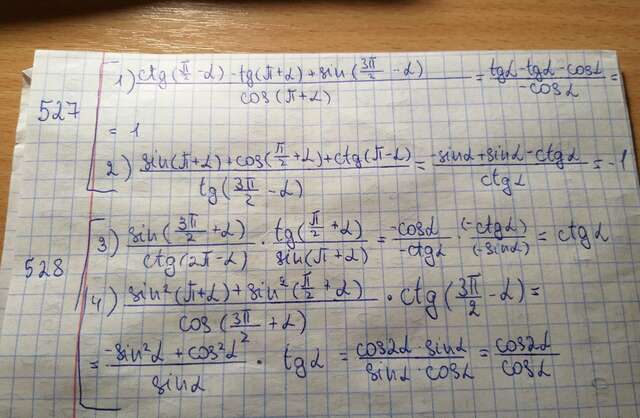 527
1) (ctg(π/2 - α) - tg(π+α) + sin(3π/2 - α)) / cos(π+α) = (tgα - tgα - cosα) / (-cosα) =
= 1
2) (sin(π+α) + cos(π/2 + α) + ctg(π-α)) / tg(3π/2 - α) = (-sinα + sinα - ctgα) / ctgα = -1
528
3) sin(3π/2 + α) / ctg(2π-α) · tg(π/2 + α) / sin(π+α) = -cosα / -ctgα · (-ctgα) / (-sinα) = ctgα
4) (sin²(π+α) + sin²(π/2 + α)) / cos(3π/2 + α) · ctg(3π/2 - α) =
= (-sin²α + cos²α) / sinα · tgα = (cos2α · sinα) / (sinα · cosα) = cos2α / cosα